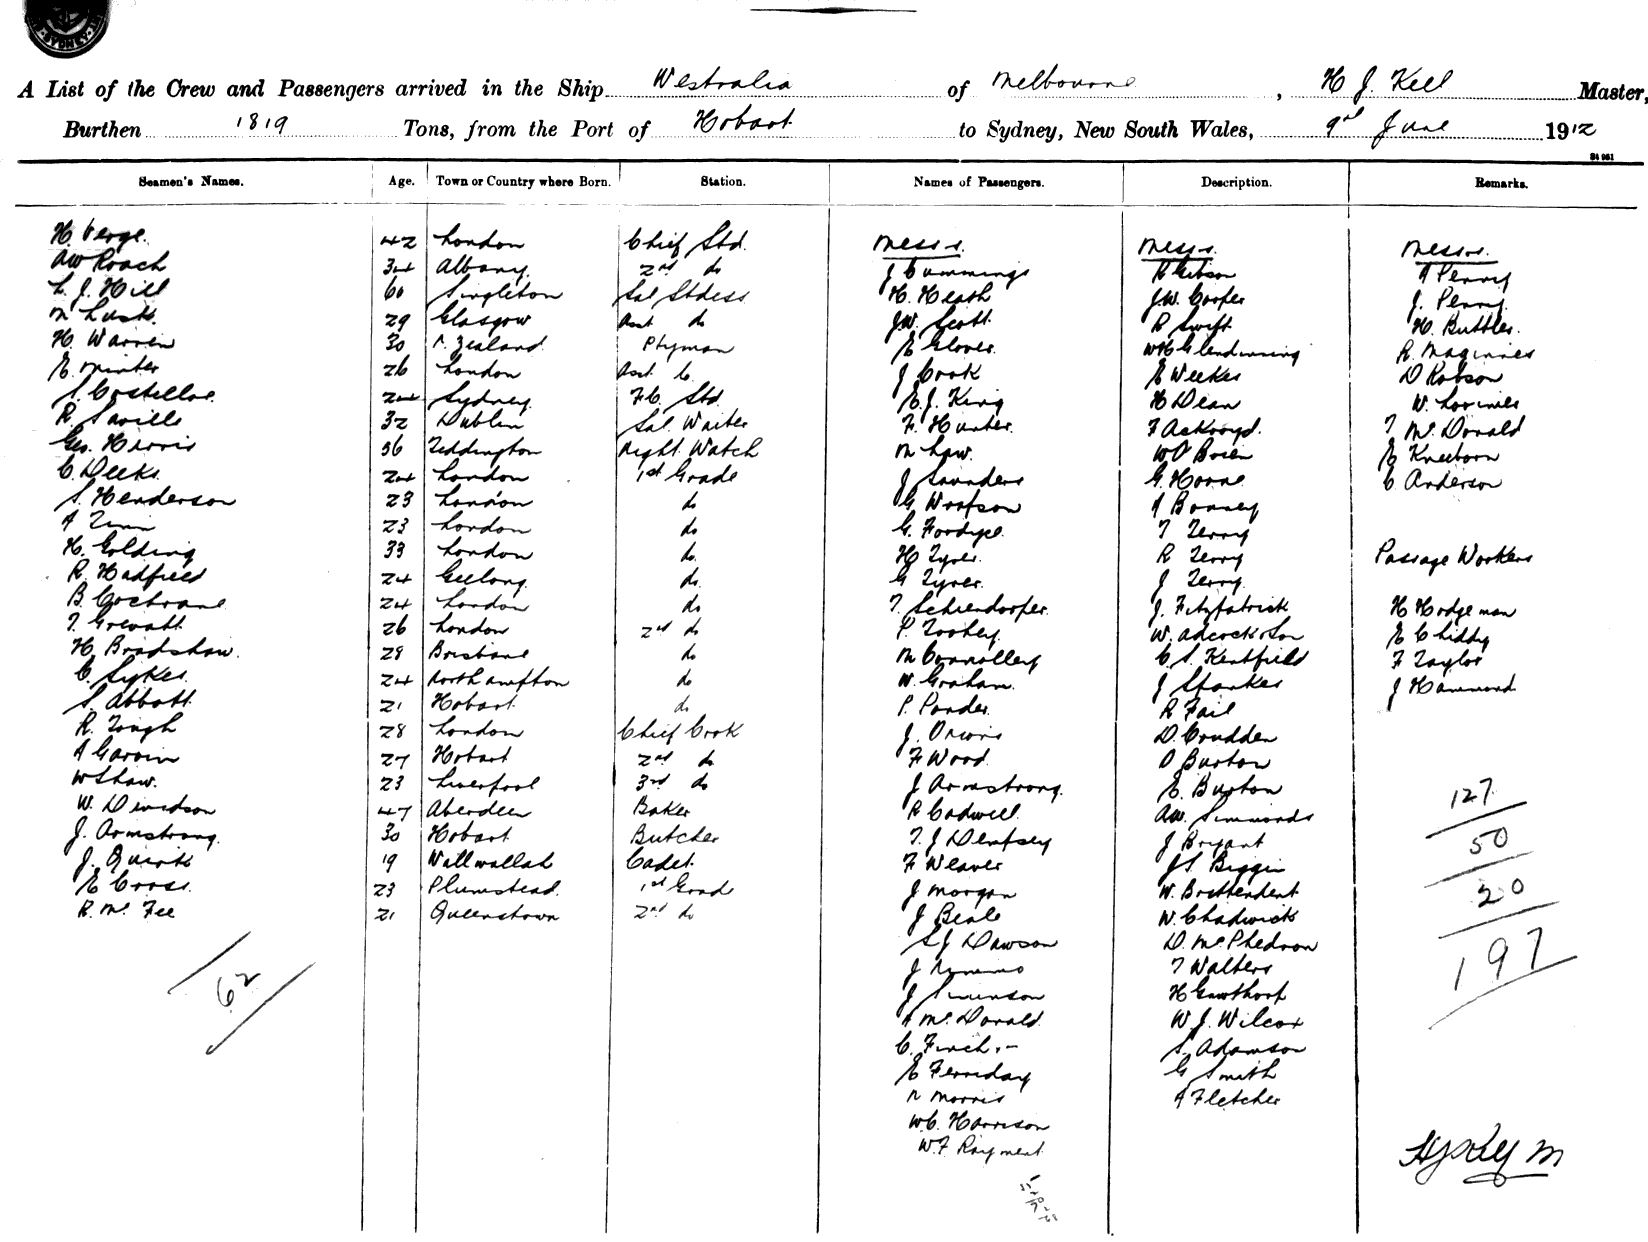 SYDNEY
A List of the Crew and Passengers arrived in the Ship Westralia of Melbourne, H J. Kell Master,
Burthen 1819 Tons, from the Port of Hobart to Sydney, New South Wales, 9th June 1912
Seamen's Names. Age. Town or Country where Born. Station. Names of Passengers. Description. Remarks.
H. Verge. 42 London Chief Std. Messrs. Messrs. Messrs.
AW Roach 34 Albany 2nd do J Cummings R Gibson A Perry
L. J. Hill 60 Singleton Sal Stdess H. Heath J.W. Cooper J. Perry
M Lusk. 29 Glasgow Asst do J.W. Scott R Swift H. Buttler.
H. Warren 30 N. Zealand Ptyman E Glover. WHGlendinning R. Maginnes
E. Minter 26 London Asst to J Cook E Weekes D Robson
S. Costelloe. 24 Sydney F.C. Std. E.J. King H Dean W.
R. Saville 32 Dublin Sal. Waiter F. Hunter. F Ackroyd. T McDonald
Geo. Herris 56 Teddington Night Watch M Law. WO Brien E Kneeborn
C. Deeks. 24 London 1st Grade J Saunders G. Horne C Anderson
S. Henderson 23 London do G Woofson A Bonney
A 23 London do G. Fordyce. T Terry
H. Golding 33 London do. H Tyrer. R Terry Passage Workers
R. Hadfield 24 Geelong. do. G Tyrer. J Terry.
B. Cochrane 24 London do T. Schiendorfer. J. Fitzpatrick H Hodgeman
T. Grewatt 26 London 2nd do P. Toohey. W. Adcock & Son E Chiddy
H. Bradshaw. 28 Brisbane do M Connolley C. S. Kentfield F Taylor
C. Sykes. 24 Northampton do W. Graham. J Starkes J Hammond
S. Abbott. 21 Hobart. do P. Ponder. R Fail
R. Tough 28 London Chief Cook J. D. Coudden
A Garvin 27 Hobart 2nd do F Wood. O Burton
W Shaw. 23 Liverpool 3rd do J Armstrong. E. Burton 127
W. Davidson 47 Aberdeen Baker R Cadwell. AW. Simmonds
J. Armstrong. 30 Hobart Butcher T. J Dempsey J Bryant 50
J. Quirk 19 Wallwallah Cadet. F Weaver J.S. Biggin
E Cross. 23 Plumstead. 1st Grade J Morgan W. Brettendent 20
R. McFee 21 Queenstown 2nd do J Beale W. Chadwick
S J Dawson D. McPhedron 197
62 J T Walters
J Simenson H Gawthorp
A McDonald W J. Wilcox
C. Finch. S. Adamson
E Ferriday G Smith
N Morris A Fletcher
W.C. Harrison
W.F Rayment